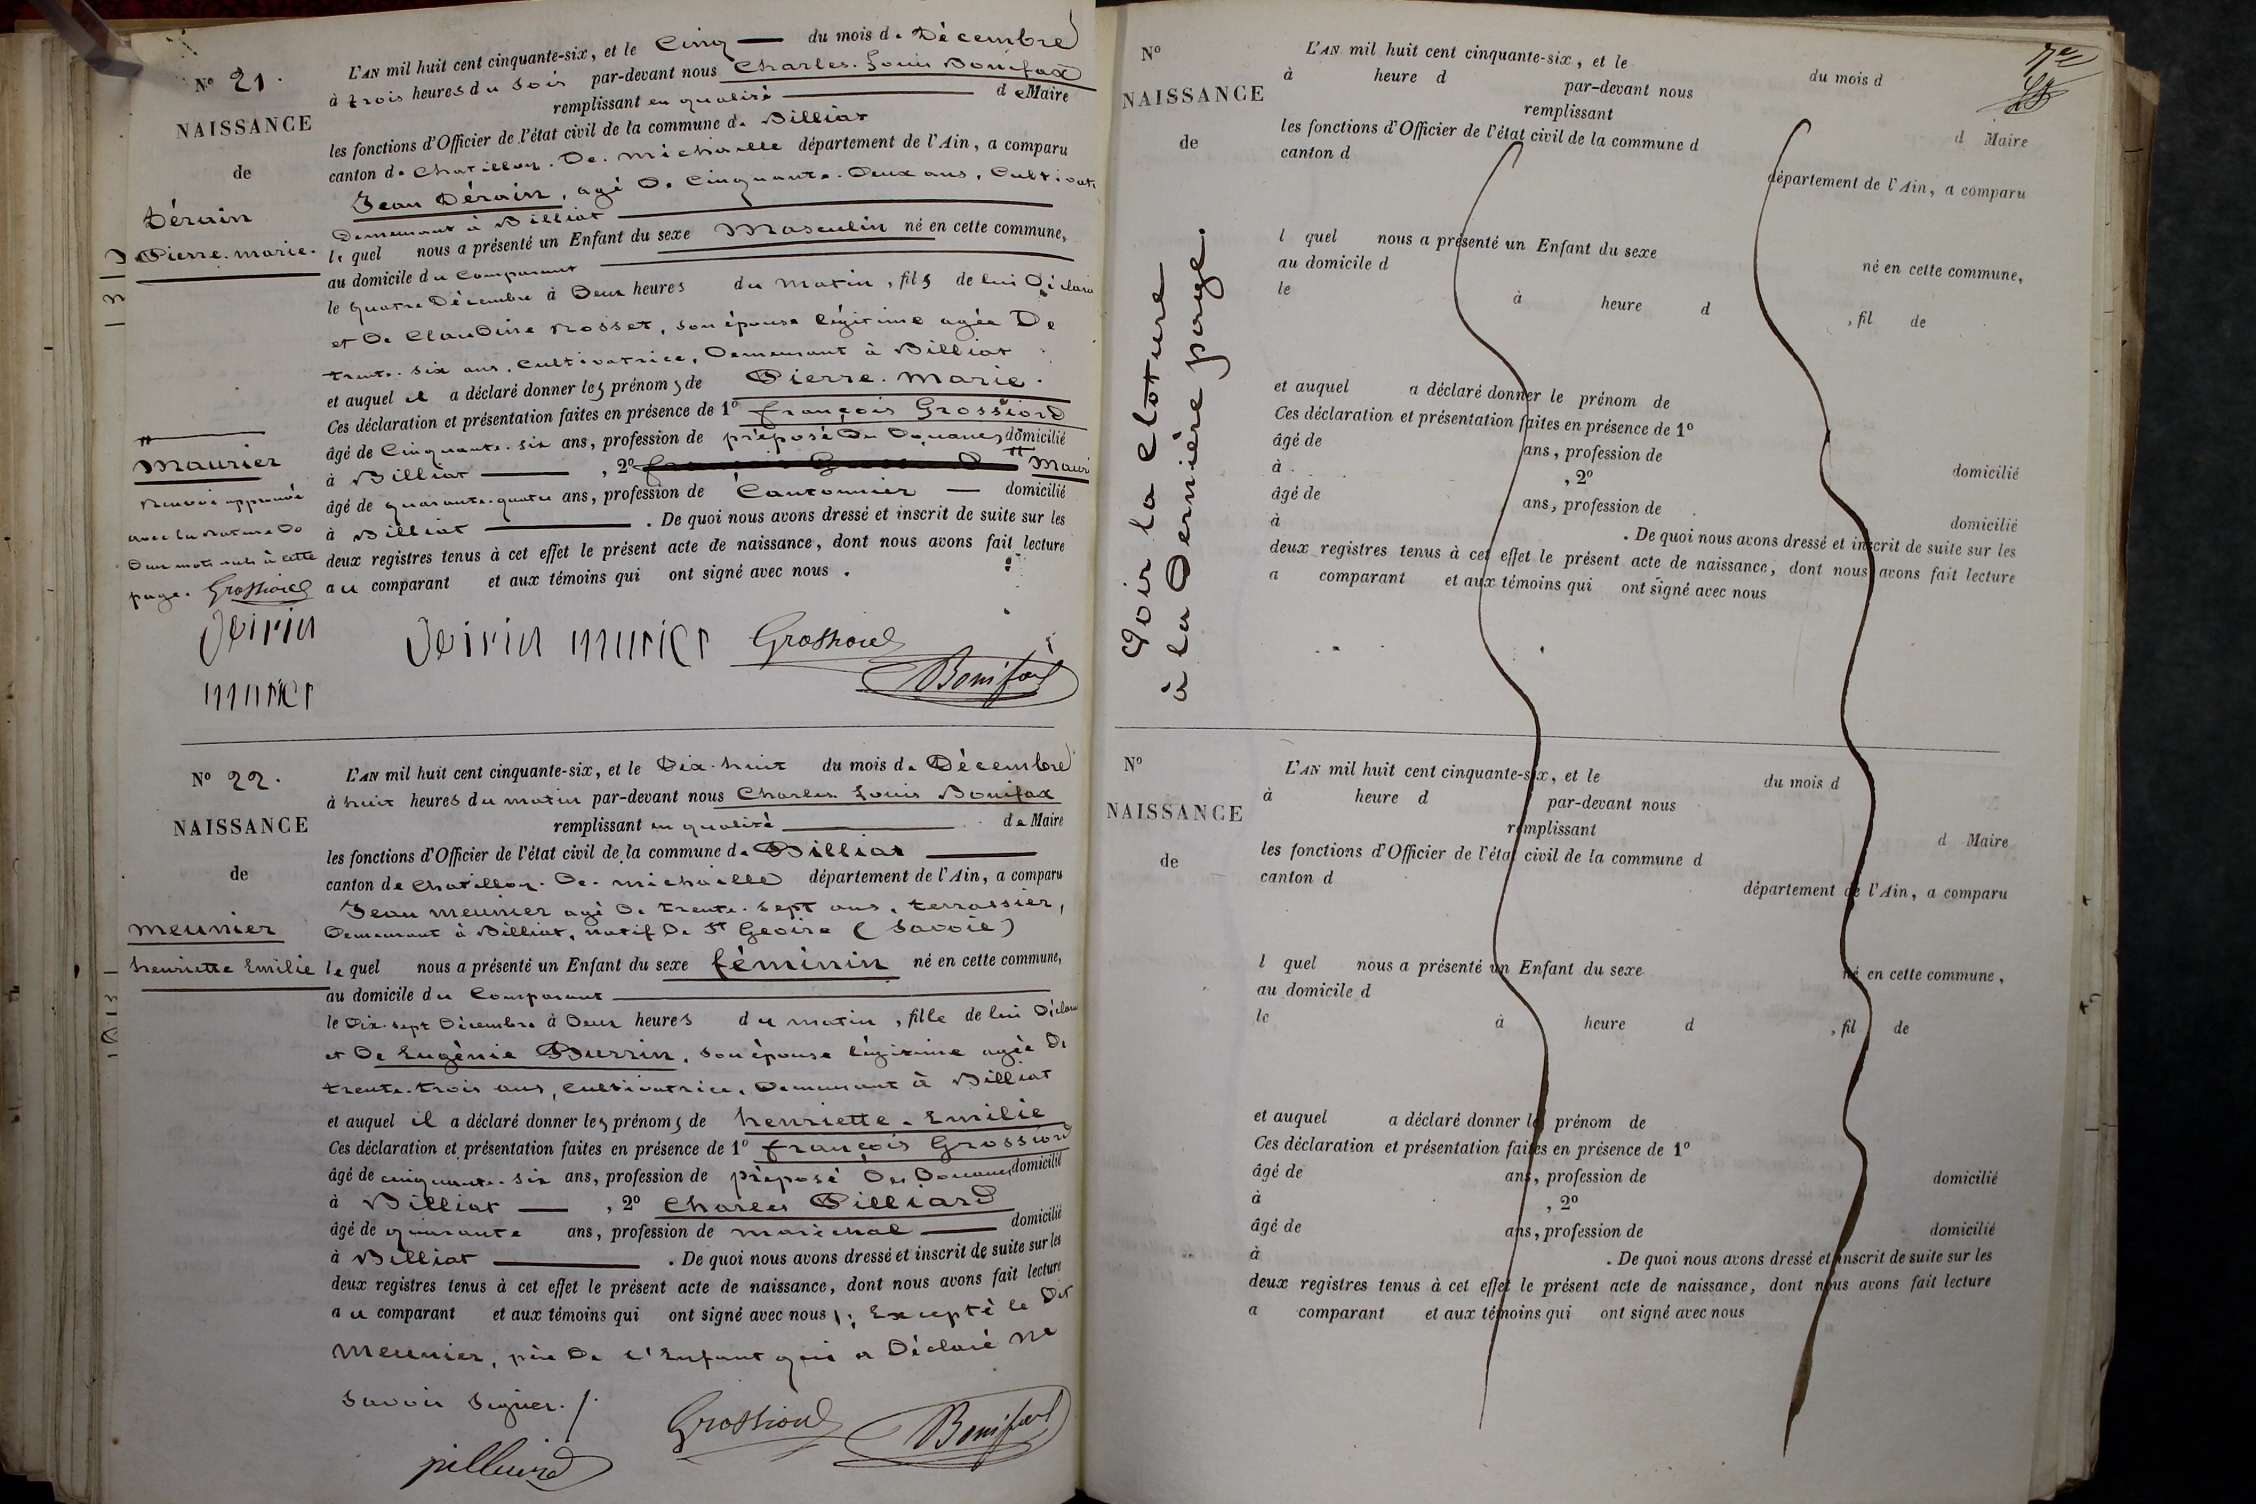 Nº 21.
NAISSANCE
de
Dérain
Pierre-marie.
L'AN mil huit cent cinquante-six, et le Cinq — du mois de Décembre
à trois heures du Soir par-devant nous Charles-Louis Bonifax
remplissant en qualité — de Maire
les fonctions d'Officier de l'état civil de la commune de Billiat
canton de Chatillon-De-michaille département de l'Ain, a comparu
Jean Dérain, agé De Cinquante-Deux ans, Cultivat
Demeurant à Billiat —
lequel nous a présenté un Enfant du sexe Masculin né en cette commune,
au domicile du Comparant —
le quatre Décembre à Deux heures du matin, fils de lui Déclara
et De Claudine Rosset, son épouse légitime agée De
trente-six ans, Cultivatrice, Demeurant à Billiat
et auquel il a déclaré donner les prénoms de Pierre-Marie.
Ces déclaration et présentation faites en présence de 1º françois Grossiord
âgé de Cinquante-six ans, profession de préposé Des Douanes domicilié
à Billiat — , 2º Mauri
âgé de quarante-quatre ans, profession de Cantonnier — domicilié
à Billiat — . De quoi nous avons dressé et inscrit de suite sur les
deux registres tenus à cet effet le présent acte de naissance, dont nous avons fait lecture
au comparant et aux témoins qui ont signé avec nous.
Maurier
Renvoi approuvé
avec la rature De
Deux mots nuls à cette
page. Grossiord
Deirin
murier
Deirin murier Grossiord
Bonifax
Nº 22.
NAISSANCE
de
meunier
henriette Emilie
L'AN mil huit cent cinquante-six, et le Dix-huit du mois de Décembre
à huit heures du matin par-devant nous Charles-Louis Bonifax
remplissant en qualité — de Maire
les fonctions d'Officier de l'état civil de la commune de Billiat —
canton de Chatillon-De-michaille département de l'Ain, a comparu
Jean meunier agé De trente-sept ans, terrassier,
Demeurant à Billiat, natif De St Geoire (Savoie)
lequel nous a présenté un Enfant du sexe féminin né en cette commune,
au domicile du Comparant —
le Dix-sept Décembre à Deux heures du matin, fille de lui Déclara
et De Eugènie Burrin, son épouse légitime agée De
trente-trois ans, Cultivatrice, Demeurant à Billiat
et auquel il a déclaré donner les prénoms de henriette-Emilie
Ces déclaration et présentation faites en présence de 1º françois Grossiord
âgé de cinquante-six ans, profession de préposé Des Douanes domicilié
à Billiat — , 2º Charles Pilliard
âgé de quarante ans, profession de maréchal — domicilié
à Billiat — . De quoi nous avons dressé et inscrit de suite sur les
deux registres tenus à cet effet le présent acte de naissance, dont nous avons fait lecture
au comparant et aux témoins qui ont signé avec nous; Excepté le Dit
Meunier, père De l'Enfant qui a Déclaré ne
savoir signer./.
pilliard Grossiord Bonifax
7e
Nº
NAISSANCE
de
Voir la Cloture
à la Dernière page.
L'AN mil huit cent cinquante-six, et le du mois d
à heure d par-devant nous
remplissant d Maire
les fonctions d'Officier de l'état civil de la commune d
canton d département de l'Ain, a comparu
l quel nous a présenté un Enfant du sexe né en cette commune,
au domicile d
le à heure d , fil de
et auquel a déclaré donner le prénom de
Ces déclaration et présentation faites en présence de 1º
âgé de ans, profession de domicilié
à , 2º
âgé de ans, profession de domicilié
à . De quoi nous avons dressé et inscrit de suite sur les
deux registres tenus à cet effet le présent acte de naissance, dont nous avons fait lecture
a comparant et aux témoins qui ont signé avec nous
Nº
NAISSANCE
de
L'AN mil huit cent cinquante-six, et le du mois d
à heure d par-devant nous
remplissant d Maire
les fonctions d'Officier de l'état civil de la commune d
canton d département de l'Ain, a comparu
l quel nous a présenté un Enfant du sexe né en cette commune,
au domicile d
le à heure d , fil de
et auquel a déclaré donner le prénom de
Ces déclaration et présentation faites en présence de 1º
âgé de ans, profession de domicilié
à , 2º
âgé de ans, profession de domicilié
à . De quoi nous avons dressé et inscrit de suite sur les
deux registres tenus à cet effet le présent acte de naissance, dont nous avons fait lecture
a comparant et aux témoins qui ont signé avec nous